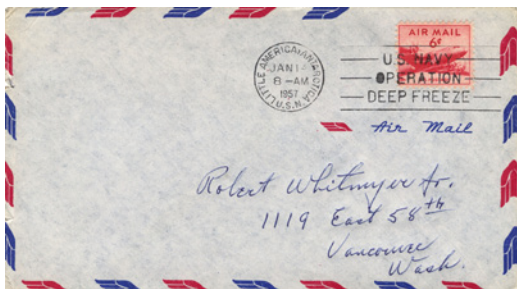 AIR MAIL
6¢
LITTLE AMERICA, ANTARCTICA
JAN 14
8 - AM
1957
U.S.N.
U.S. NAVY
OPERATION
DEEP FREEZE
Air Mail
Robert Whitmyer Jr.
1119 East 58th
Vancouver
Wash.